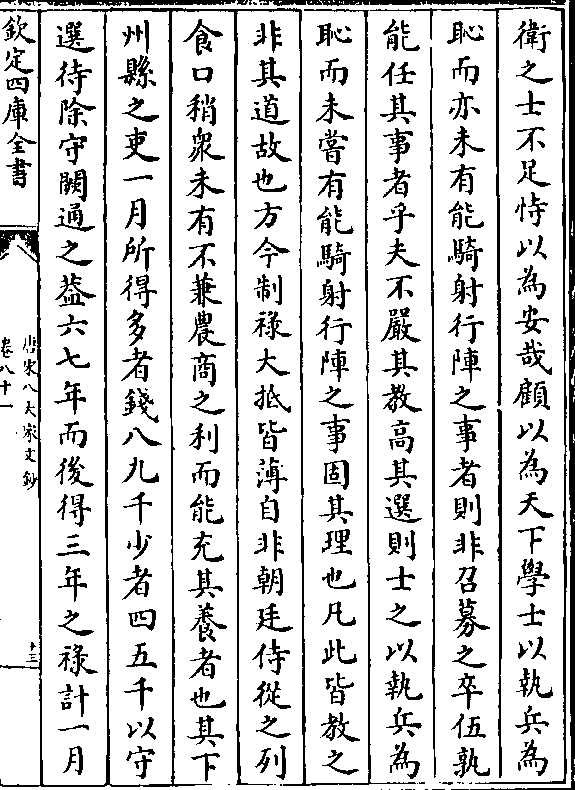 衛之士不足恃以為安哉顧以為天下學士以執兵為
恥而亦未有能騎射行陣之事者則非召募之卒伍孰
能任其事者乎夫不嚴其教高其選則士之以執兵為
恥而未嘗有能騎射行陣之事固其理也凡此皆教之
非其道故也方今制祿大抵皆薄自非朝廷侍從之列
食口稍衆未有不兼農商之利而能充其養者也其下
州縣之吏一月所得多者錢八九千少者四五千以守
選待除守闕通之葢六七年而後得三年之祿計一月
欽定四庫全書
唐宋八大家文鈔
卷八十一
十三